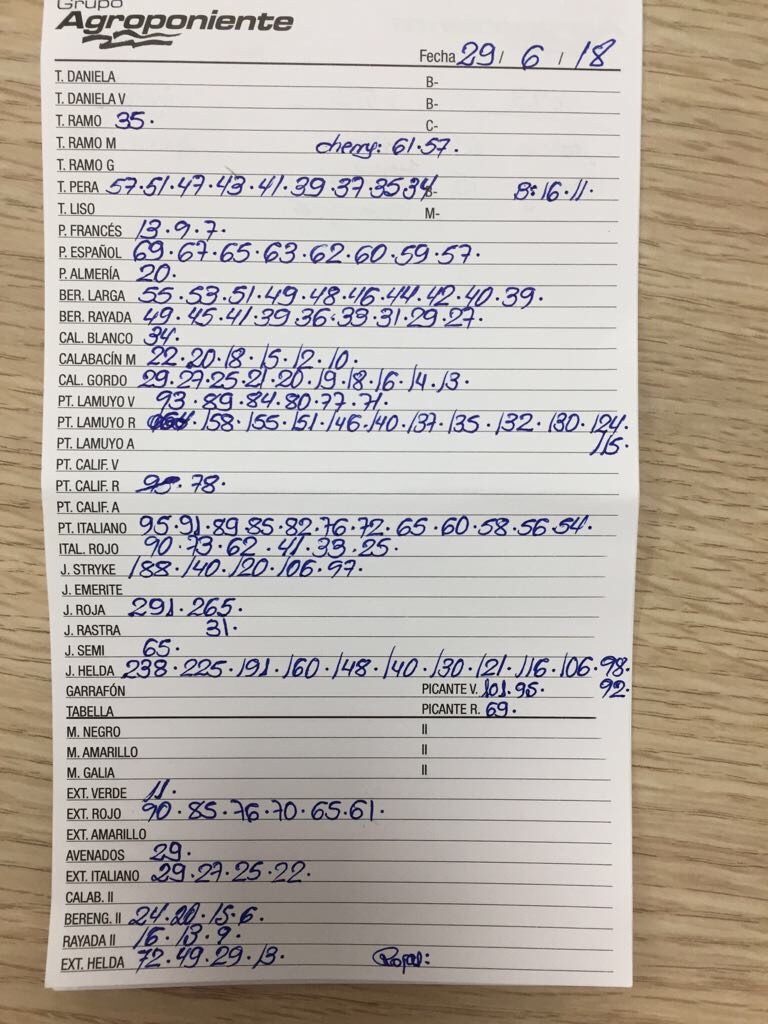 Grupo
Agroponiente
Fecha 29 / 6 / 18
T. DANIELA B-
T. DANELA V B-
T. RAMO 35. C-
T. RAMO M cherry: 61.57.
T. RAMO G
T. PERA 57.51.47.43.41.39.37.35 34 B- B: 16.11.
T. LISO M-
P. FRANCÉS 13.9.7.
P. ESPAÑOL 69.67.65.63.62.60.59.57.
P. ALMERÍA 20.
BER. LARGA 55.53.51.49.48.46.44.42.40.39.
BER. RAYADA 49.45.41.39.36.33.31.29.27.
CAL. BLANCO 34.
CALABACÍN M 22.20.18.15.12.10.
CAL. GORDO 29.27.25.21.20.19.18.16.14.13.
PT. LAMUYO V 93.89.84.80.77.71.
PT. LAMUYO R 158.155.151.146.140.137.135.132.130.124.
115.
PT. LAMUYO A
PT. CALIF. V
PT. CALIF. R 95.78.
PT. CALIF. A
PT. ITALIANO 95.91.89.85.82.76.72.65.60.58.56.54.
ITAL. ROJO 90.73.62.41.33.25.
J. STRYKE 188.140.120.106.97.
J. EMERITE
J. ROJA 291.265.
J. RASTRA 31.
J. SEMI 65.
J. HELDA 238.225.191.160.148.140.130.121.116.106.98.
GARRAFÓN PICANTE V. 101.95. 92.
TABELLA PICANTE R. 69.
M. NEGRO II
M. AMARILLO II
M. GALIA II
EXT. VERDE 11.
EXT. ROJO 90.85.76.70.65.61.
EXT. AMARILLO
AVENADOS 29.
EXT. ITALIANO 29.27.25.22.
CALAB. II
BERENG. II 24.20.15.6.
RAYADA II 16.13.9.
EXT. HELDA 72.49.29.13.